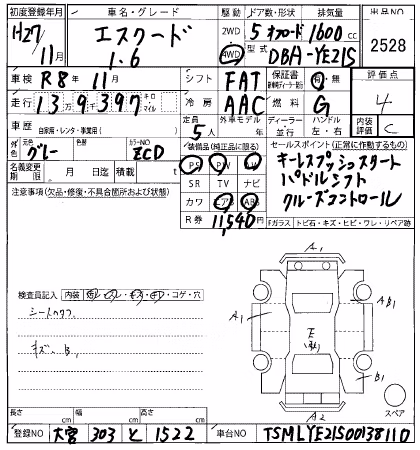 初度登録年月 車名・グレード 駆動 ドア数・形状 排気量 出品NO
H27/11月 エスクード 1.6 2WD 4WD 5 1600 cc 2528
型式 DBA-YE21S
車検 R8年 11月 シフト FAT 保証書 有・無 評価点 4
走行 139397 キロ マイル 冷房 AAC 燃料 G 内装評価 C
車歴 自家用・レンタ・事業用( ) 定員 5人 外車モデル 年 ディーラー 並行 ハンドル 左・右
元色 色 グレー カラーNO ZCD 装備品(純正品に限る) セールスポイント(正常に作動するもの)
名義変更期限 月 日迄 積載 t PS PW キーレスプッシュスタート
注意事項(欠品・修復・不具合箇所および状態) SR TV ナビ パドルシフト
カワ エアB ABS クルーズコントロール
R券 11,540円 Fガラス トビ石・キズ・ヒビ・ワレ・リペア跡
A1
検査員記入 内装 コゲ・穴 A1 B1
A1 E
キズ、B1 B1
A2 スペア
長さ cm 幅 cm 高さ cm
登録NO 大宮 303 と 1522 車台NO TSMLYE21S00138110